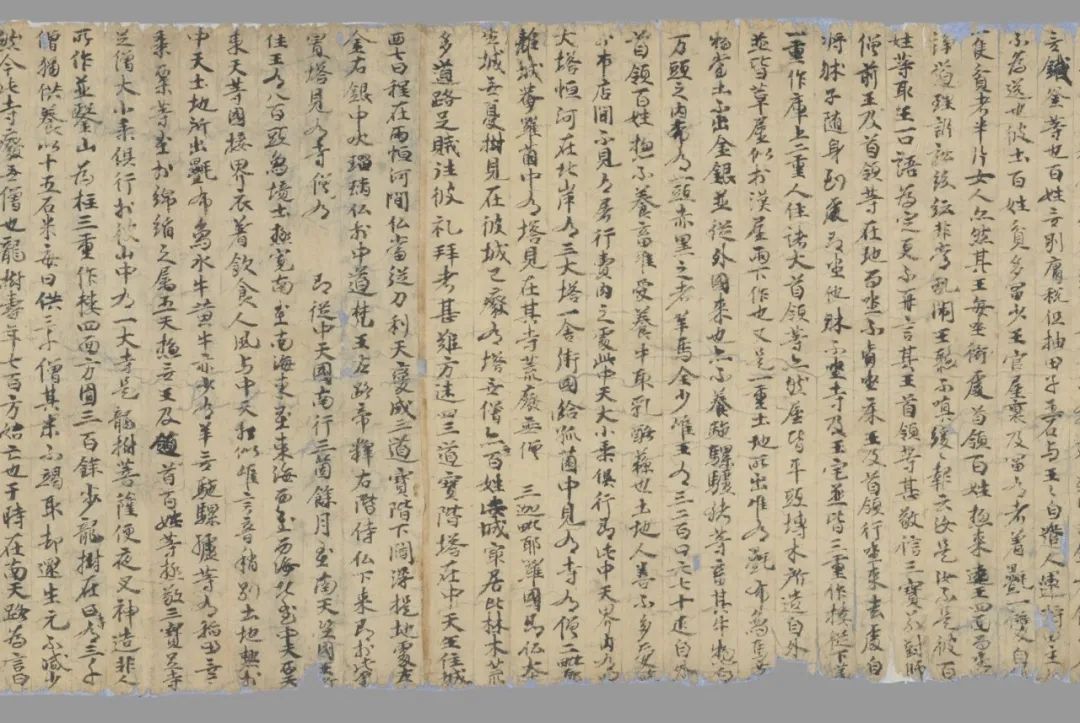 無鐵釜等也百姓無別庸稅但抽田子五石与王王自遣人運將田主
不為送也彼土百姓貧多富少王官屋裏及富有者著㲲一雙自
一隻貧者半片女人亦然其王每坐衙處首領百姓惣來遶王四面而坐
諍道理訴訟紛紜非常亂鬧王聽不嗔緩々報云汝是汝不是彼百
姓等取王一口語為定更不再言其王首領等甚敬信三寶若對師
僧前王及首領等在地而坐不肯坐床王及首領行坐來去處自
將床子隨身到處即坐他床不坐寺及王宅並皆三重作樓從下第
一重作庫上二重人住諸大首領等亦然屋皆平頭塼木所造自外
並皆草屋似於漢屋雨下作也又是一重土地所出唯有㲲布象馬等
物當土不出金銀並從外國來也亦不養駞騾驢猪等畜其牛惣白
万頭之內希有一頭赤黑之者羊馬全少唯王有三二百口六七十疋自外
首領百姓惣不養畜唯愛養牛取乳酪蘇也土地人善不多愛煞
於市店間不見有屠行賣肉之處此中天大小乘俱行即此中天界內有四
大塔恒河在北岸有三大塔一舍衛國給孤薗中見有寺有僧二毗耶
離城菴羅薗中有塔見在其寺荒廢無僧 三迦毗耶羅國即仏本
生城無憂樹見在彼城已廢有塔無僧亦無百姓此城寂居北林木荒
多道路足賊往彼礼拜者甚難方迷四三道寶階塔在中天王住城
西七日程在兩恒河間仏當從刀利天變成三道寶階下閻浮提地處左
金右銀中吠瑠璃仏於中道梵王左路帝釋右階侍仏下來即於此處
置塔見有寺有僧 即從中天國南行三箇餘月至南天竺國王所
住王有八百頭象境土極寬南至南海東至東海西至西海北至中天西天
東天等國接界衣著飲食人風与中天相似唯言音稍別土地熱於
中天土地所出㲲布象水牛黃牛亦少有羊無駞騾驢等有稻田無
黍粟等至於綿絹之属五天惣無王及領首百姓等極敬三寶足寺
足僧大小乘俱行於彼山中有一大寺是龍樹菩薩便夜叉神造非人
所作並鑿山為柱三重作樓四面方圓三百餘步龍樹在日寺有三千
僧獨供養以十五石米每日供三千僧其米不竭取却還生元不減少
然今此寺廢無僧也龍樹壽年七百方始亡也于時在南天路為言曰